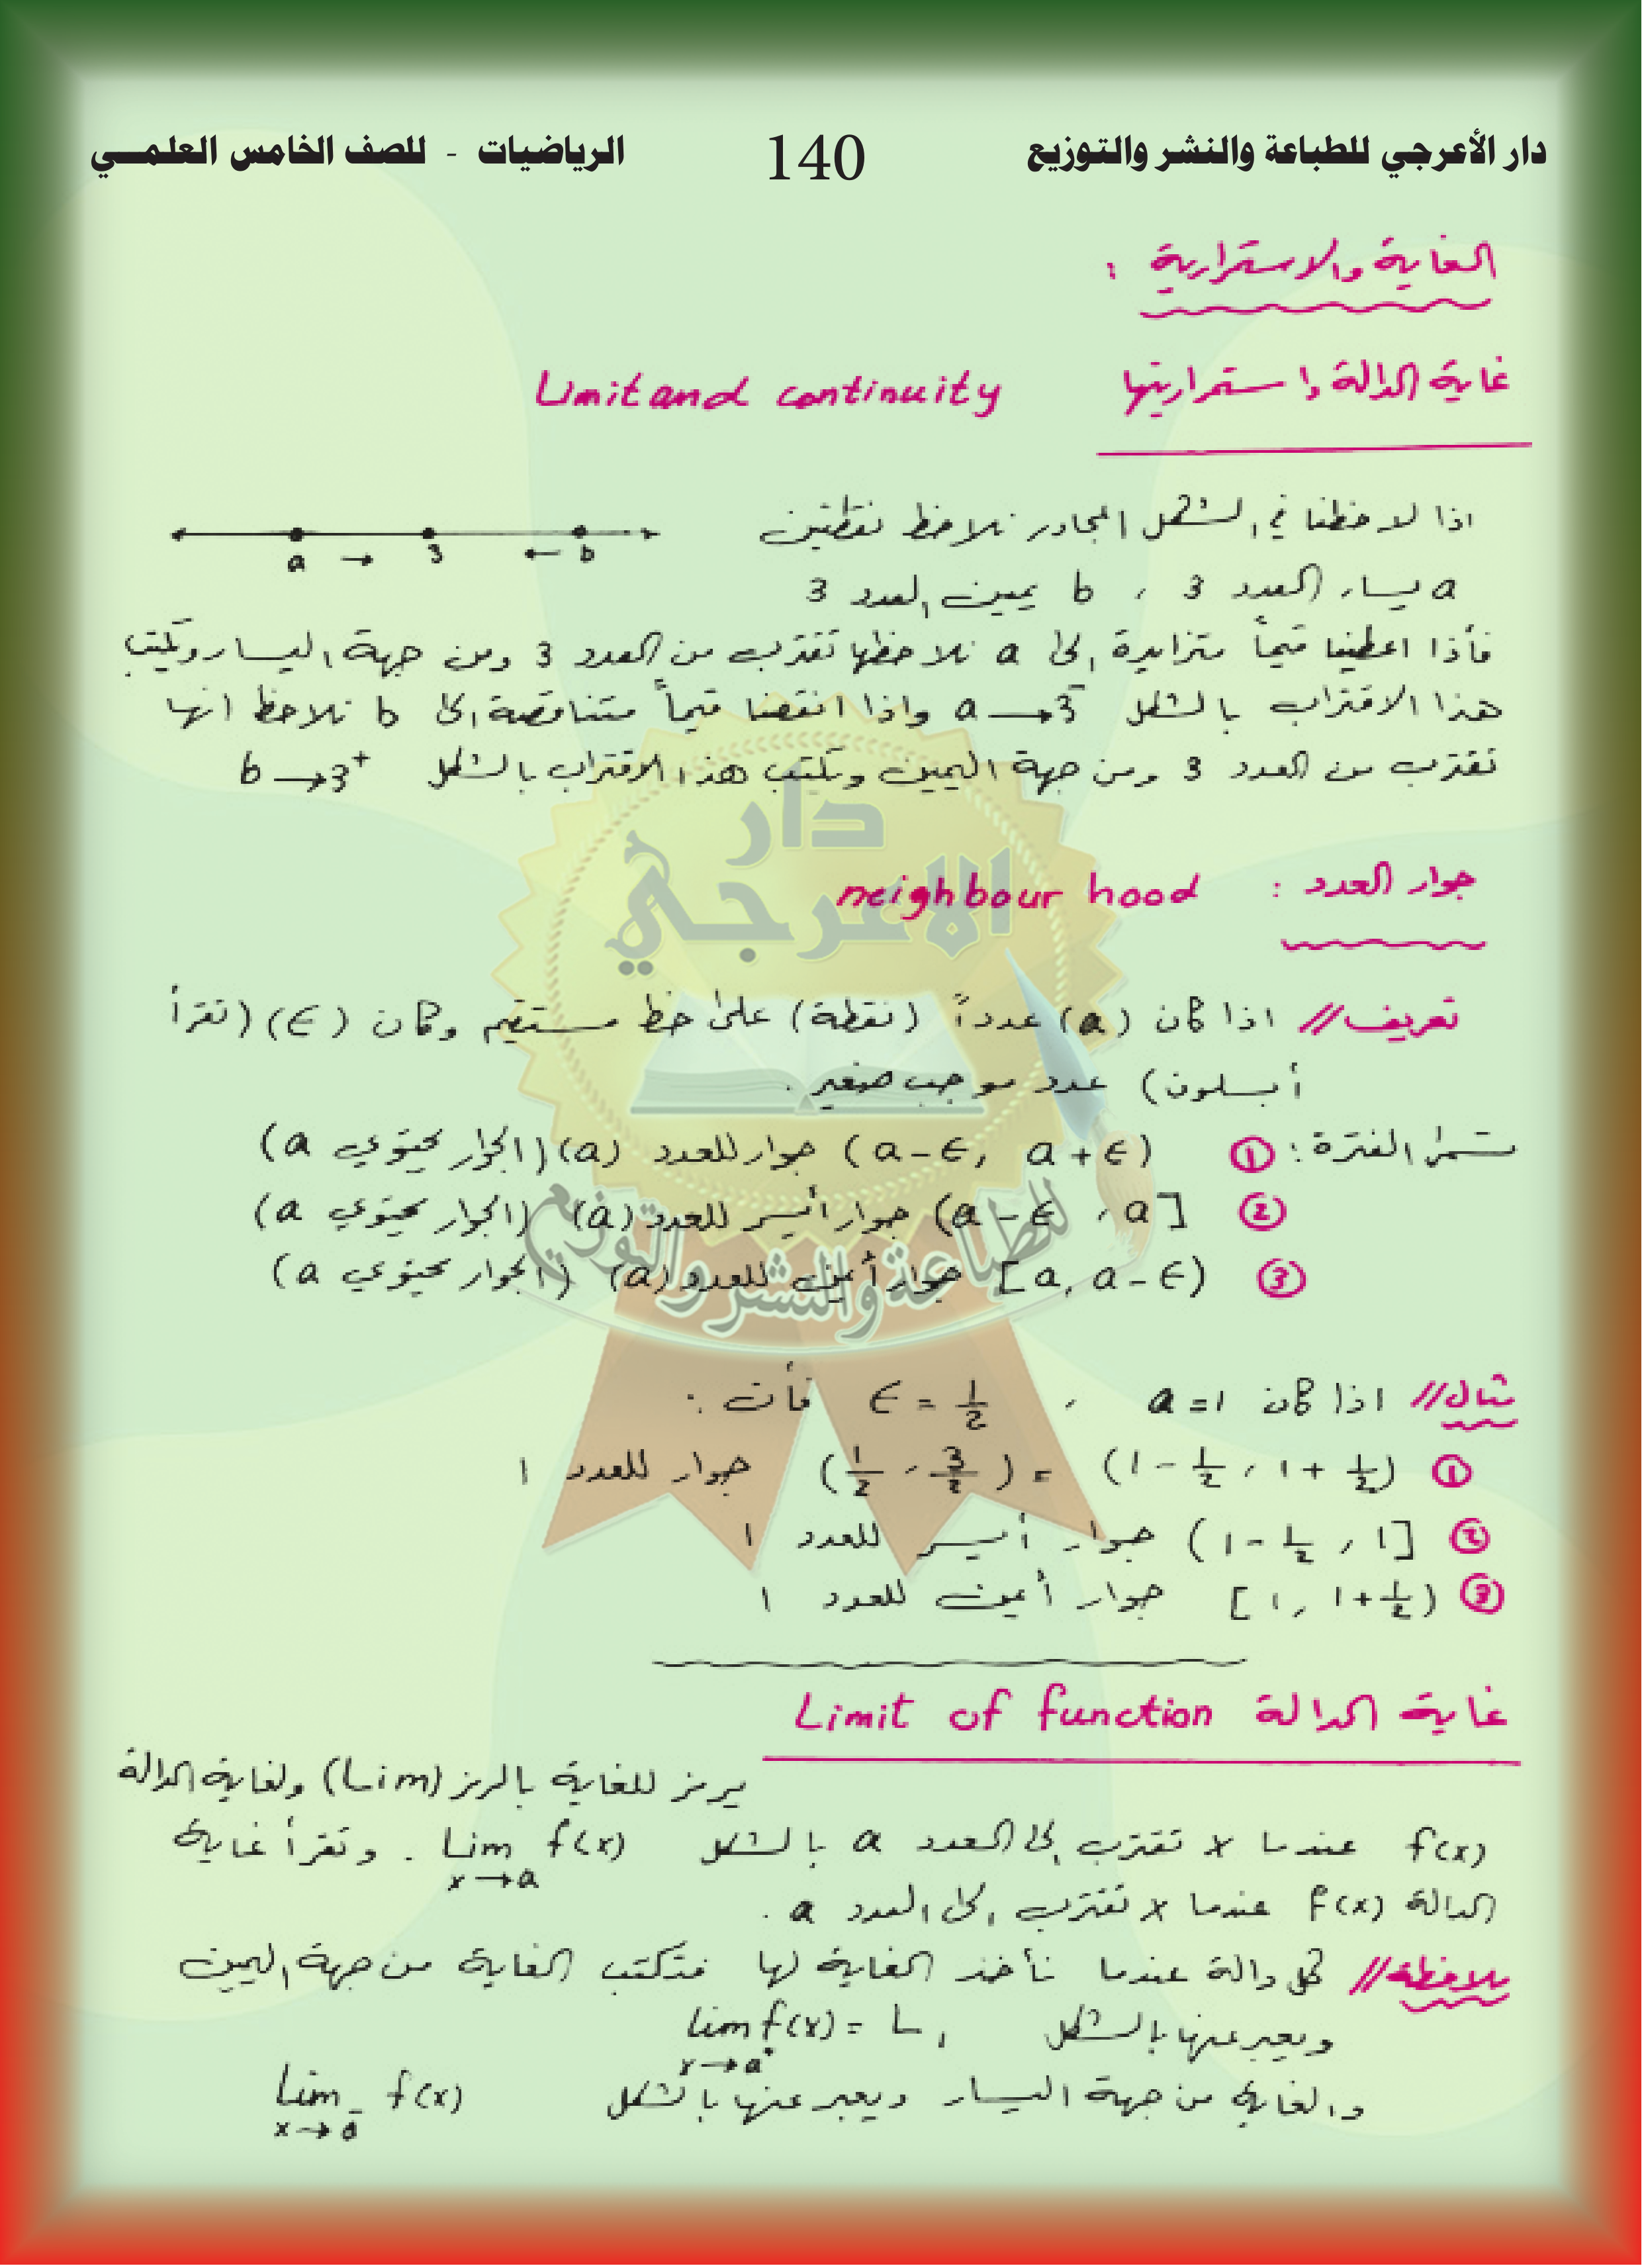 دار الأعرجي للطباعة والنشر والتوزيع 140 الرياضيات - للصف الخامس العلمـــي
الغاية والاستمرارية :
غاية الدالة واستمراريتها Limit and continuity
اذا لاحظنا في الشكل المجاور نلاحظ نقطتين
a → 3 ← b
a يسار العدد 3 ، b يمين العدد 3
فأذا اعطينا قيماً متزايدة الى a نلاحظها تقترب من العدد 3 ومن جهة اليسار ونكتب
هذا الاقتراب بالشكل a → 3⁻ واذا انقصنا قيماً متناقصة الى b نلاحظ انها
تقترب من العدد 3 ومن جهة اليمين ونكتب هذا الاقتراب بالشكل b → 3⁺
جوار العدد : neighbour hood
تعريف // اذا كان (a) عدداً (نقطة) على خط مستقيم وكان (ϵ) (تقرأ
أبسلون) عدد موجب صغير .
تسمى الفترة : ① (a-ϵ, a+ϵ) جوار للعدد (a) (الجوار يحتوي a)
② (a-ϵ, a] جوار أيسر للعدد (a) (الجوار يحتوي a)
③ [a, a-ϵ) جوار أيمن للعدد (a) (الجوار يحتوي a)
مثال // اذا كان a=1 ، ϵ = 1/2 فأن :
① (1 - 1/2 , 1 + 1/2) = (1/2 , 3/2) جوار للعدد 1
② (1 - 1/2 , 1] جوار أيسر للعدد 1
③ [1 , 1 + 1/2) جوار أيمن للعدد 1
غاية الدالة Limit of function
يرمز للغاية بالرمز (Lim) ولغاية الدالة
f(x) عندما x تقترب الى العدد a بالشكل Lim x→a f(x) . وتقرأ غاية
الدالة f(x) عندما x تقترب الى العدد a .
ملاحظة // كل دالة عندما نأخذ الغاية لها فتكتب الغاية من جهة اليمين
ويعبر عنها بالشكل lim x→a⁺ f(x) = L₁
والغاية من جهة اليسار ويعبر عنها بالشكل Lim x→a⁻ f(x)
دار
الاعرجي
للطباعة والنشر والتوزيع